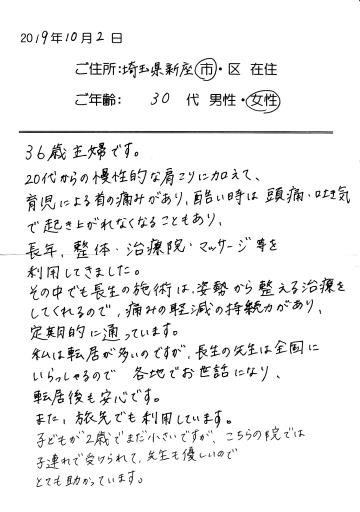 2019年10月2日
ご住所:埼玉県新座市・区 在住
ご年齢: 30 代 男性・女性
36歳主婦です。
20代からの慢性的な肩こりに加えて、
育児による首の痛みがあり、酷い時は頭痛・吐き気
で起き上がれなくなることもあり、
長年、整体・治療院・マッサージ等を
利用してきました。
その中でも長生の施術は、姿勢から整える治療を
してくれるので、痛みの軽減の持続力があり、
定期的に通っています。
私は転居が多いのですが、長生の先生は全国に
いらっしゃるので 各地でお世話になり、
転居後も安心です。
また、旅先でも利用しています。
子どもが2歳でまだ小さいですが、こちらの院では
子連れで受けられて、先生も優しいので
とても助かっています。